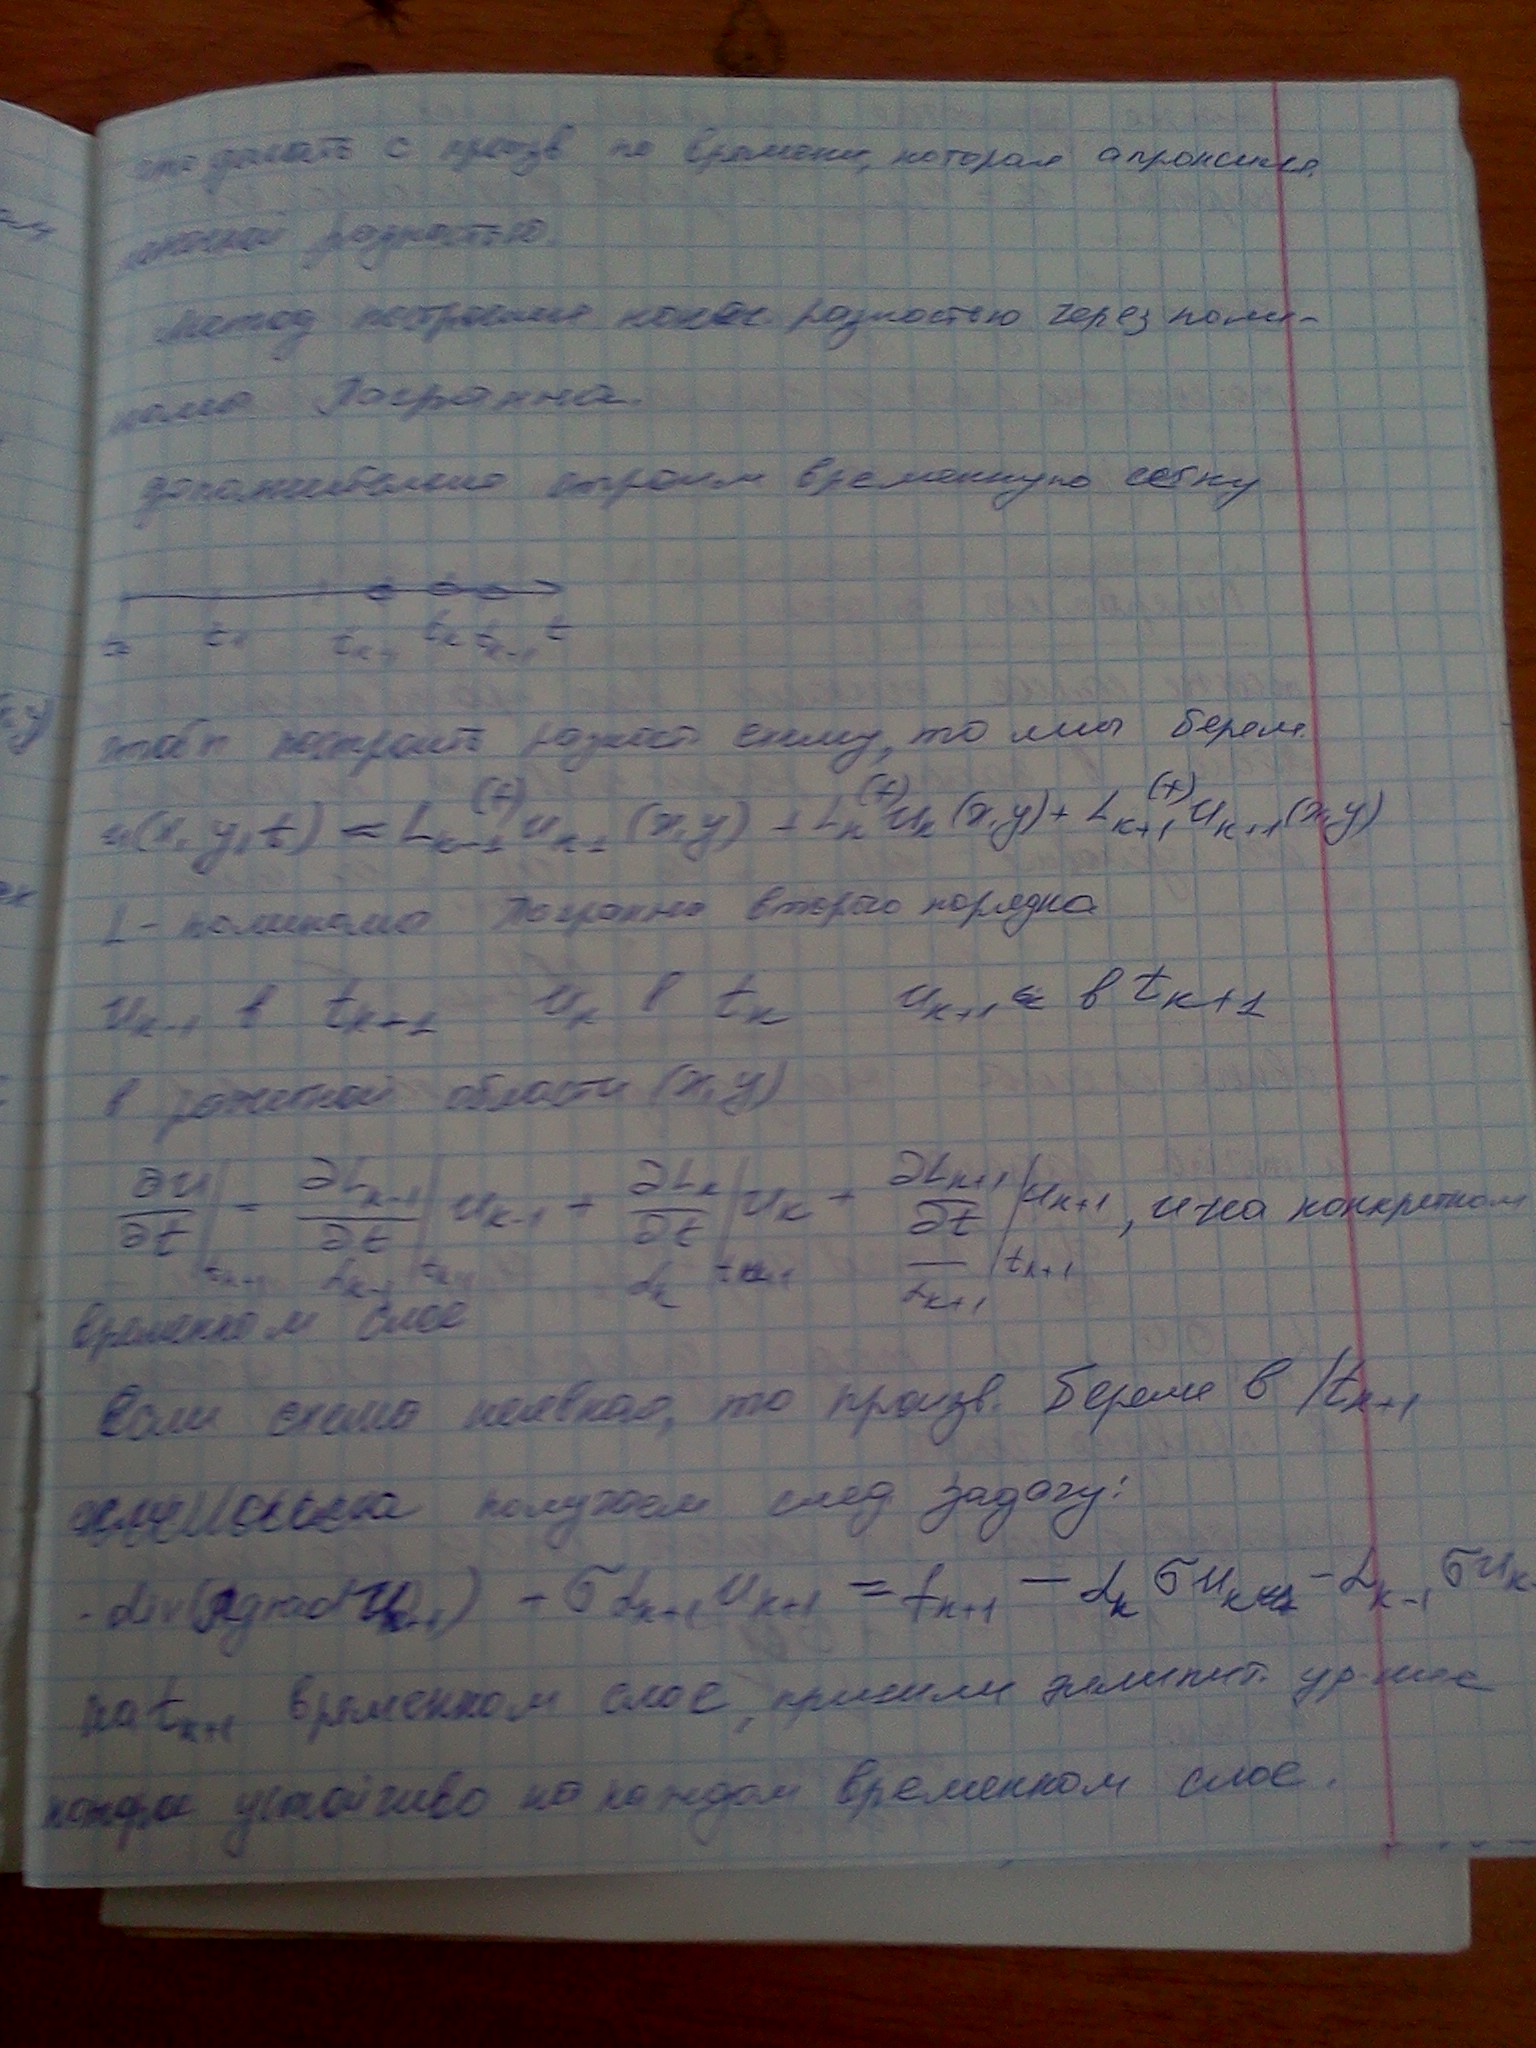 что делать с произв по времени, которая апроксим.
конечной разностью.
метод построения конеч. разностью через поли-
нома Лагранжа.
дополнительно строим временную сетку
t₁ tₖ₋₁ tₖ tₖ₊₁ t
чтоб построить разност схему, то мы берем
u(x, y, t) ≈ Lₖ₋₁(t) uₖ₋₁(x,y) + Lₖ(t) uₖ(x,y) + Lₖ₊₁(t) uₖ₊₁(x,y)
L - полинома Лагранжа второго порядка
uₖ₋₁ в tₖ₊₁ uₖ в tₖ uₖ₊₁ в tₖ₊₁
в расчетной области (x,y)
∂u/∂t|tₖ₊₁ = ∂Lₖ₋₁/∂t|tₖ₊₁ uₖ₋₁ + ∂Lₖ/∂t|tₖ₊₁ uₖ + ∂Lₖ₊₁/∂t|tₖ₊₁ uₖ₊₁, u-на конкретном
αₖ₋₁ αₖ αₖ₊₁
временном слое
Если схема неявная, то произв. берем в |tₖ₊₁
получаем след задачу:
-div(λgrad uₖ₊₁) + σαₖ₊₁uₖ₊₁ = fₖ₊₁ - αₖσuₖ - αₖ₋₁σuₖ₋
на tₖ₊₁ временном слое, пришли элипит. ур-ние
которое устойчиво на каждом временном слое.